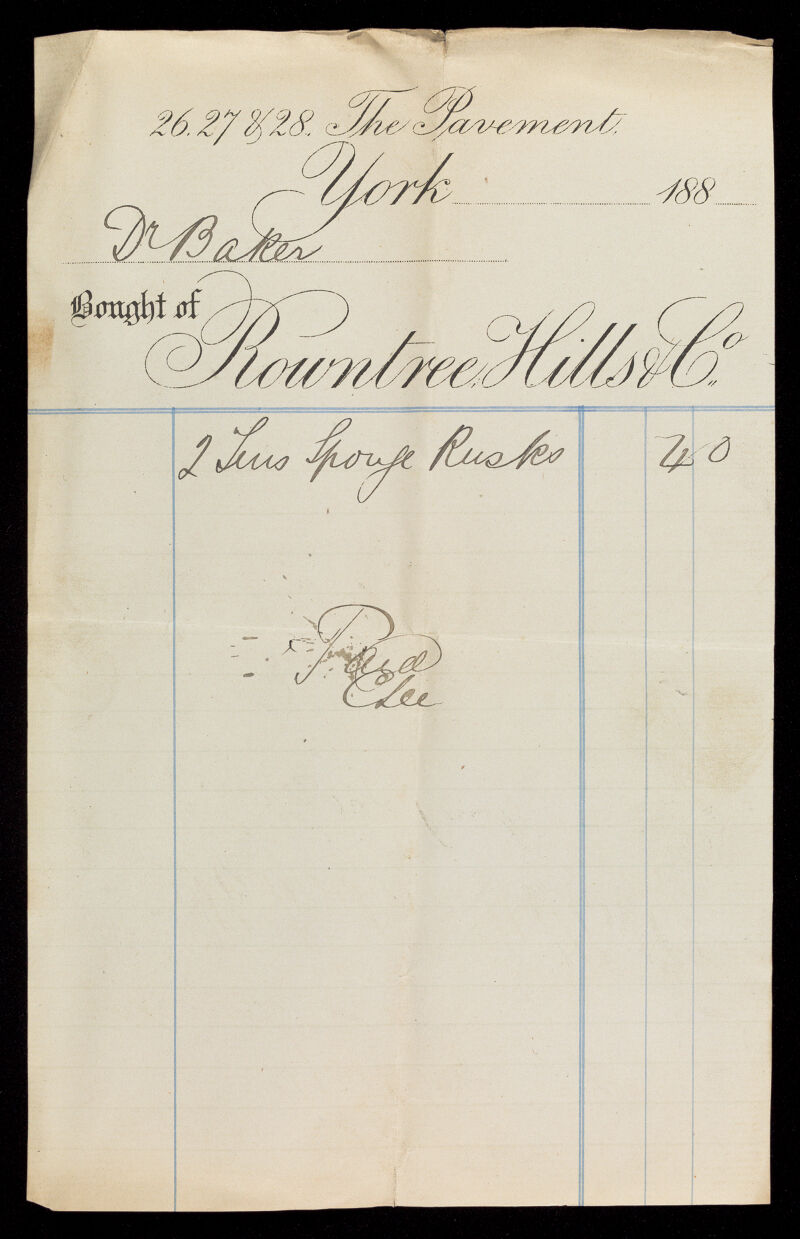 26. 27 & 28. The Pavement.
York 188
Dr Baker
Bought of
Rowntree, Hills & Co.
2 Tins Sponge Rusks 4 0
Paid